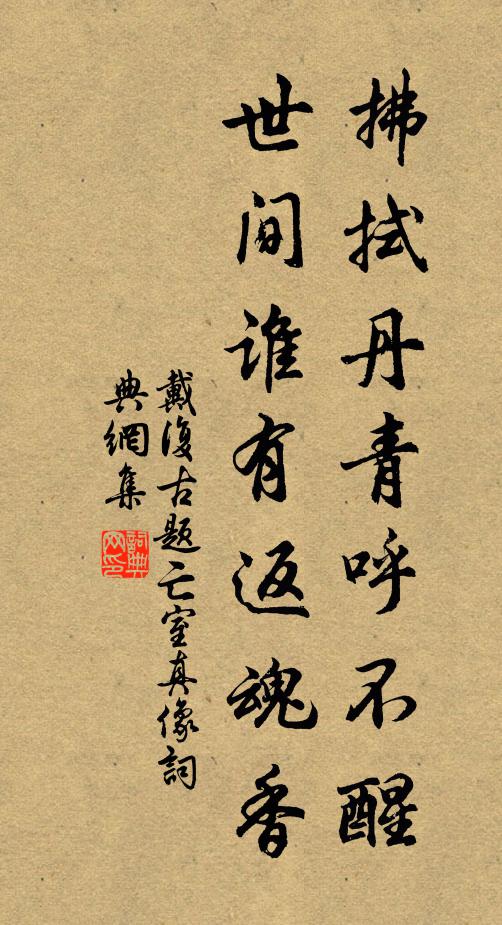 拂拭丹青呼不醒
世间谁有返魂香
戴復古题亡室真像詞
典網集
詞典网印